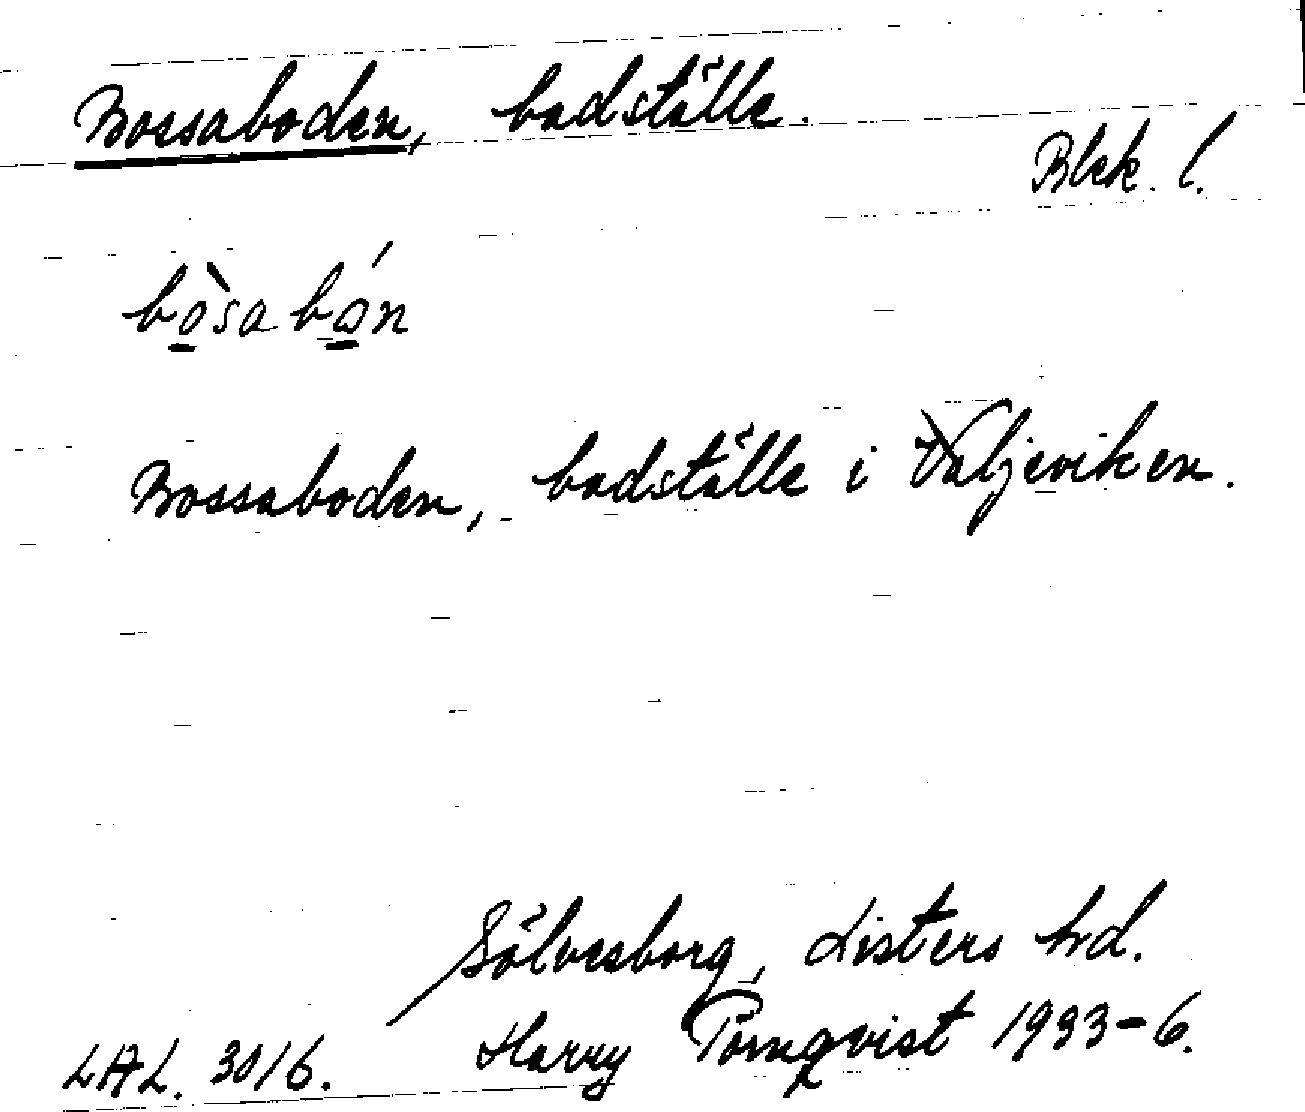 Bossaboden, badställe.
Blek. l.
bo̱̊̀sa bǫ́n
Bossaboden, badställe i Valjeviken.
Sölvesborg, Listers hd.
LAL. 3016. Harry Törnqvist 1933-6.